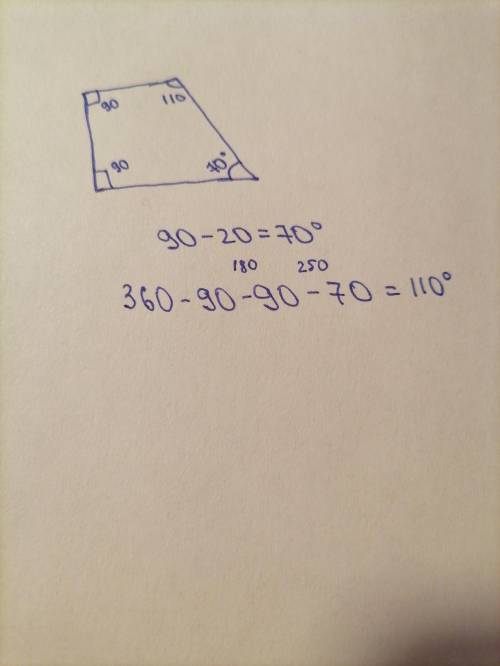 90 110
90 70°
90-20=70°
180 250
360-90-90-70=110°